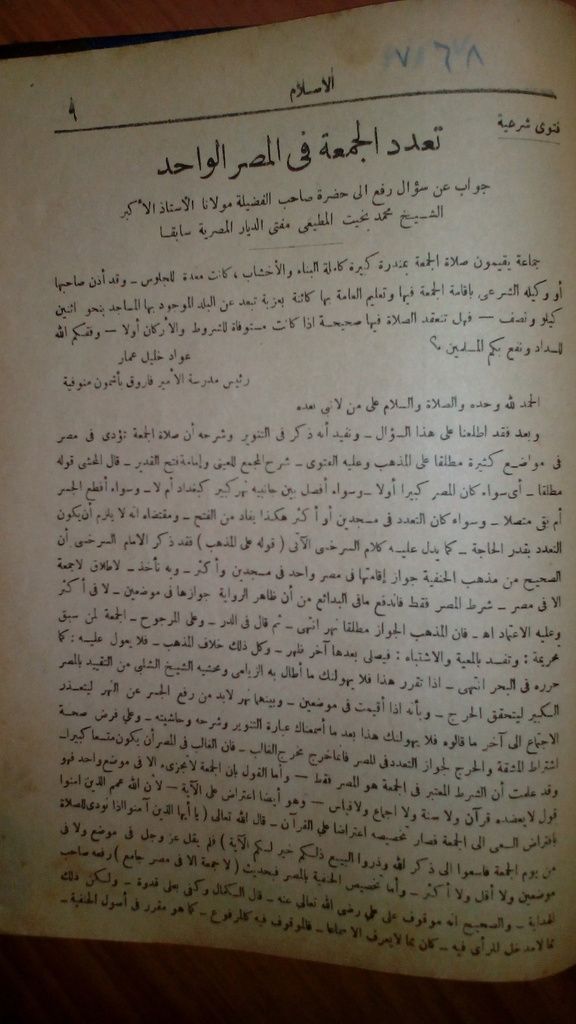 ٧٦٨
الاسلام
٩
فتوى شرعية
تعدد الجمعة فى المصر الواحد
جواب عن سؤال رفع الى حضرة صاحب الفضيلة مولانا الأستاذ الأكبر
الشيخ محمد بخيت المطيعى مفتى الديار المصرية سابقا
جماعة يقيمون صلاة الجمعة بمندرة كبيرة كاملة البناء والأخشاب ، كانت معدة للجلوس ــ وقد أذن صاحبها
أو وكيله الشرعى باقامة الجمعة فيها وتعليم العامة بها كائنة بعزبة تبعد عن البلد الموجود بها المساجد بنحو اثنين
كيلو ونصف — فهل تنعقد الصلاة فيها صحيحة اذا كانت مستوفاة للشروط والأركان أولا — وفقكم الله
للسداد ونفع بكم المسلمين ؟
عواد خليل عمار
رئيس مدرسة الأمير فاروق بأشمون منوفية
الحمد لله وحده والصلاة والسلام على من لانبى بعده
وبعد فقد اطلعنا على هذا السؤال ــ ونفيد أنه ذكر فى التنوير وشرحه أن صلاة الجمعة تؤدى فى مصر
فى مواضع كثيرة مطلقا على المذهب وعليه الفتوى ــ شرح المجمع للعينى وإمامة فتح القدير ــ قال المحشى قوله
مطلقا ــ أى سواء كان المصر كبيرا أولا ــ وسواء أفصل بين جانبيه نهر كبير كبغداد أم لا ــ وسواء أقطع الجسر
أم بقى متصلا ــ وسواء كان التعدد فى مسجدين أو أكثر هكذا يفاد من الفتح ــ ومقتضاه انه لا يلزم أن يكون
التعدد بقدر الحاجة ــ كما يدل عليه كلام السرخسى الآتى ( قوله على المذهب ) فقد ذكر الامام السرخسى أن
الصحيح من مذهب الحنفية جواز إقامتها فى مصر واحد فى مسجدين وأكثر ــ وبه نأخذ ــ لاطلاق لاجمعة
الا فى مصر ــ شرط المصر فقط فاندفع مافى البدائع من أن ظاهر الرواية جوازها فى موضعين ــ لا فى أكثر
وعليه الاعتماد اهـ ــ فان المذهب الجواز مطلقا نهر انتهى ــ ثم قال فى الدر ــ وعلى المرجوح ــ الجمعة لمن سبق
تحريمة : وتفسد بالمعية والاشتباه : فيصلى بعدها آخر ظهر ــ وكل ذلك خلاف المذهب ــ فلا يعول عليه : كما
حرره فى البحر انتهى ــ اذا تقرر هذا فلا يهولنك ما أطال به الزيلعى ومحشيه الشيخ الشلبى من التقييد بالمصر
الكبير ليتحقق الحرج ــ وبأنه اذا أقيمت فى موضعين ــ وبينهما نهر لابد من رفع الجسر عن النهر ليتعذر
الاجتماع الى آخر ما قالوه فلا يهولنك هذا بعد ما أسمعناك عبارة التنوير وشرحه وحاشيته ــ وعلى فرض صحة
اشتراط المشقة والحرج لجواز التعدد فى المصر فانما خرج مخرج الغالب ــ فان الغالب فى المصر أن يكون متسعا كبيرا ــ
وقد علمت أن الشرط المعتبر فى الجمعة هو المصر فقط ــ وأما القول بان الجمعة لاتجزىء الا فى موضع واحد فهو
قول لا يعضده قرآن ولا سنة ولا اجماع ولا قياس — وهو أيضا اعتراض على الآية — لأن الله عمم الذين آمنوا
بافتراض السعى الى الجمعة فصار تخصيصه اعتراضا على القرآن ــ قال الله تعالى ( يا أيها الذين آمنوا اذا نودى للصلاة
من يوم الجمعة فاسعوا الى ذكر الله وذروا البيع ذلكم خير لكم الآية ) فلم يقل عز وجل فى موضع ولا فى
موضعين ولا أقل ولا أكثر ــ وأما تخصيص الحنفية بالمصر فبحديث ( لا جمعة الا فى مصر جامع ) رفعه صاحب
الهداية ــ والصحيح انه موقوف على على رضى الله تعالى عنه ــ قال الكمال وكفى بعلى قدوة ــ ولكن ذلك
مما لامدخل للرأى فيه ــ كان مما لا يعرف الا سماعا ــ فالموقوف فيه كالمرفوع ــ كما هو مقرر فى أصول الحنفية ــ